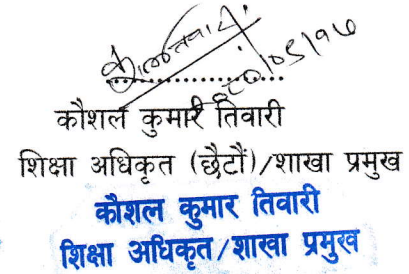 कौशल कुमार तिवारी
शिक्षा अधिकृत (छैटौं)/शाखा प्रमुख
कौशल कुमार तिवारी
शिक्षा अधिकृत/शाखा प्रमुख